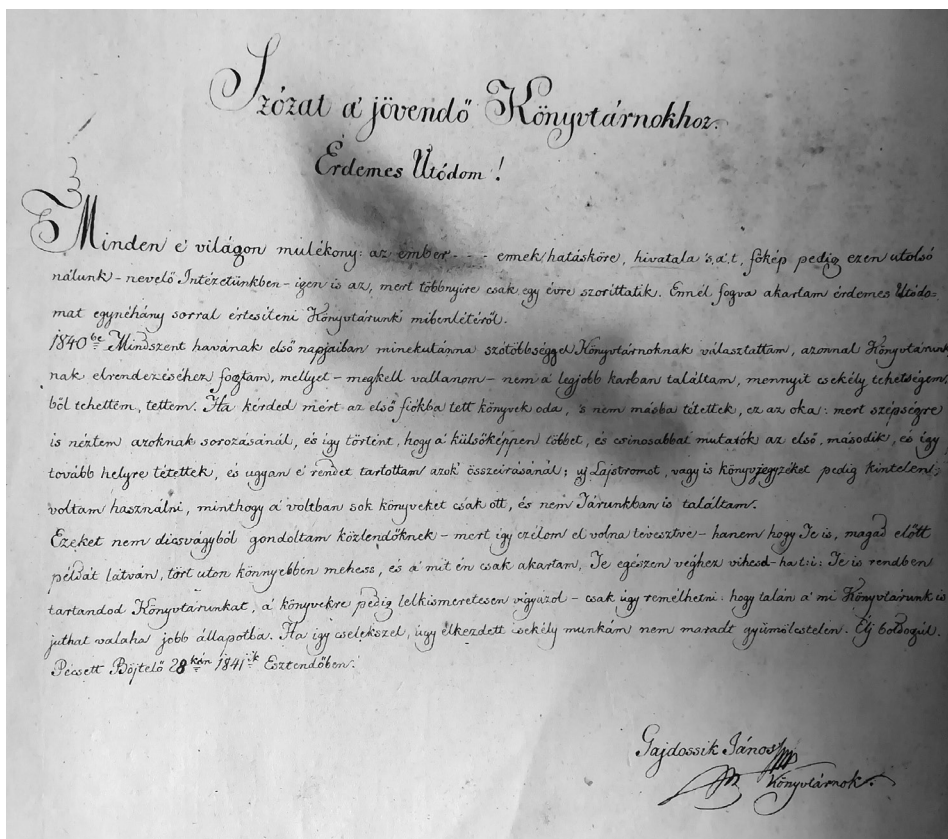 Szózat a' jövendő Könyvtárnokhoz.
Érdemes Utódom!
Minden e' világon mulékony: az ember - - - ennek hatásköre, hivatala 's. a' t, főkép pedig ezen utolsó
nálunk - nevelő Intézetünkben - igen is az, mert többnyire csak egy évre szoríttatik. Ennél fogva akartam érdemes Utódo-
mat egynéhány sorral értesíteni Könyvtárunk' mibenlétéről.
1840be Mindszent havának első napjaiban minekutánna szótöbbséggel Könyvtárnoknak választattam, azonnal Könyvtárunk
nak elrendezéséhez fogtam, mellyet - megkell vallanom - nem a' legjobb karban találtam, mennyit csekély tehetségem,
ből tehettem, tettem. Ha kérded mért az első fiókba tett könyvek oda, 's nem másba tétettek, ez az oka: mert szépségre
is néztem azoknak sorozásánál, és így történt, hogy a' külsőképpen többet, és csinosabbat mutatók az első, második, és így
tovább helyre tétettek, és ugyan e' rendet tartottam azok' összeírásánál; uj Lajstromot, vagy is könyvjegyzéket pedig kintelen
voltam használni, minthogy a' voltban sok könyveket csak ott, és nem Tárunkban is találtam.
Ezeket nem dicsvágyból gondoltam közlendőknek - mert így czélom el volna tévesztve - hanem hogy Te is, magad előtt
példát látván, tört uton könnyebben mehess, és a' mit én csak akartam, Te egészen véghez vihesd - ha t: i: Te is rendben
tartandod Könyvtárunkat, a' könyvekre pedig lelkismeretesen vigyázol - csak úgy remélhetni: hogy talán a' mi Könyvtárunk is
juthat valaha jobb állapotba. Ha így cselekszel, úgy elkezdett csekély munkám nem maradt gyümölcstelen. Élj boldogúl.
Pécsett Böjtelő 28kán 1841ik Esztendőben.
Gajdossik János
Könyvtárnok.